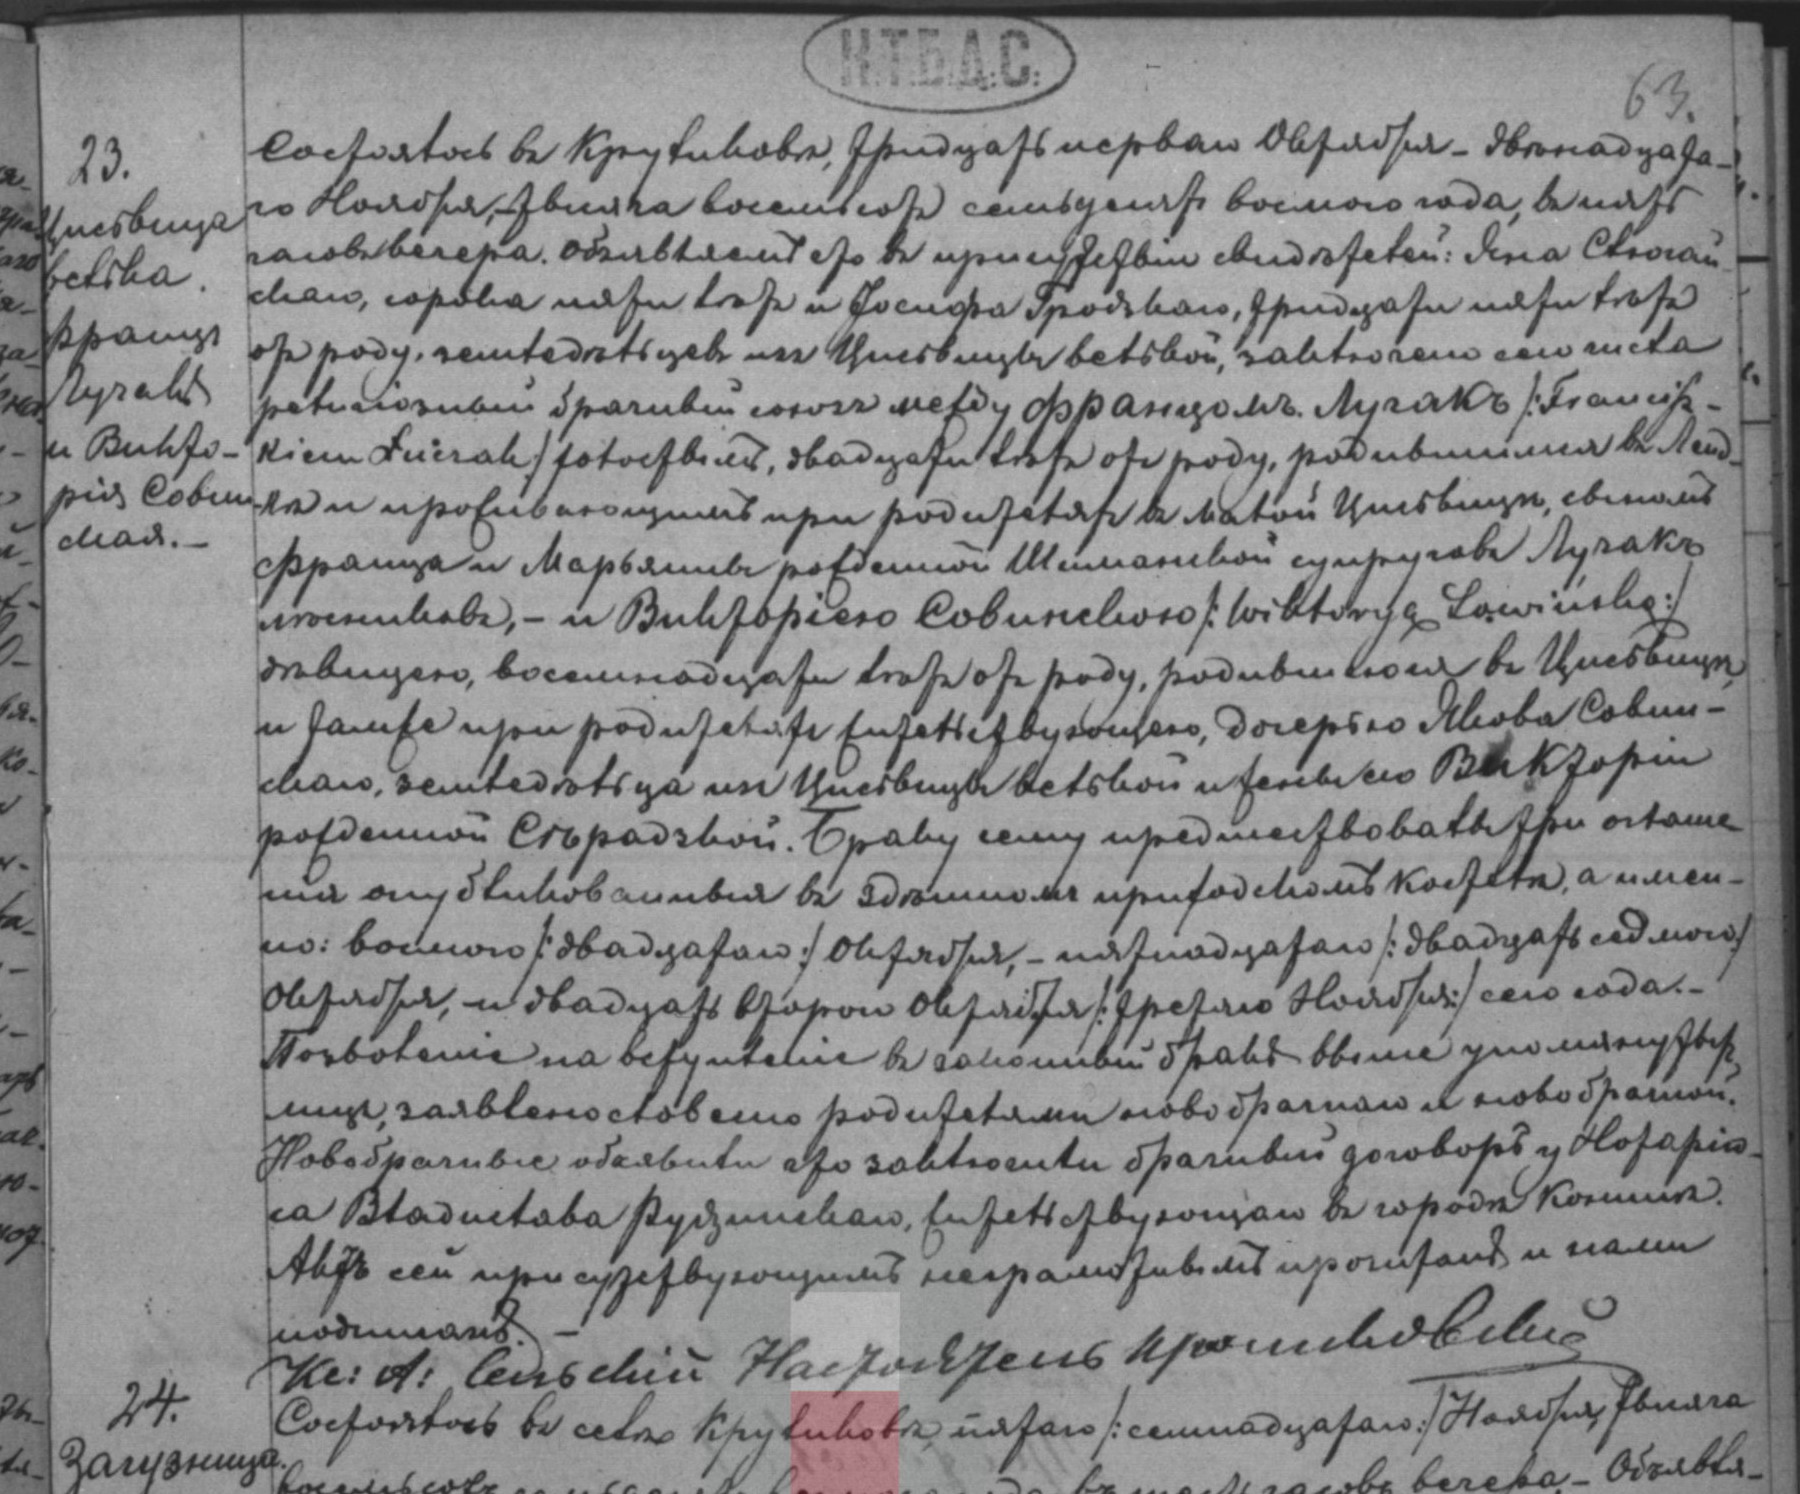 Н.Т.Б.Д.С.
63.
23.
Цнесвица
велька.
Францъ
Лучакъ
и Викто-
рія Совин-
ская.—
Состоялось въ Крулкиковѣ, тридцать перваго Октября – двѣнадцата-
го Ноября, тысяча восемьсотъ семьдесятъ восьмого года, въ пять
часовъ вечера. Объявляемъ что въ присутствіи свидѣтелей:
скаго, сорока пяти лѣтъ и Іосифа Гродзкаго, тридцати пяти лѣтъ
отъ роду, земледѣльцевъ изъ Цнесвицы велькой, заключенъ сего числа
религіозный брачный союзъ между Францомъ Лучакъ /:Francisz-
kiem Łuczak:/ холостымъ, двадцати лѣтъ отъ роду, родившимся въ
и проживающимъ при родителяхъ въ малой Цнесвицѣ, сыномъ
Франца и Марьянны рожденной Шиманской супруговъ Лучакъ
– и Викторіею Совинскою /:Wiktoryą Sowińską:/
дѣвицею, восемнадцати лѣтъ отъ роду, родившеюся въ Цнесвицѣ
и тамже при родителяхъ жительствующею, дочерью Якова Совин-
скаго, земледѣльца изъ Цнесвицы велькой и жены его Викторіи
рожденной Сѣрадзкой. Браку сему предшествовали три оглаше-
нія опубликованныя въ здѣшномъ приходскомъ костелѣ, а имен-
но: восьмого /:двадцатаго:/ Октября, – пятнадцатаго /:двадцать седмого:/
Октября, – и двадцать второго Октября /:третяго Ноября:/ сего года.–
Позволеніе на вступленіе въ законный бракъ выше упомянутыхъ
лицъ, заявлено словесно родителями новобрачнаго и новобрачной.
Новобрачные объявили что заключили брачный договоръ у Нотаріу-
са Владислава жительствующаго въ городѣ Конинѣ.
Актъ сей присутствующимъ неграмотнымъ прочитанъ и нами
подписанъ. –
Кс: А: Настоятель
24.
Загузница.
Состоялось въ селѣ Крулкиковѣ, пятаго /:семнадцатаго:/ Ноября, тысяча
вечера,– Объявля-